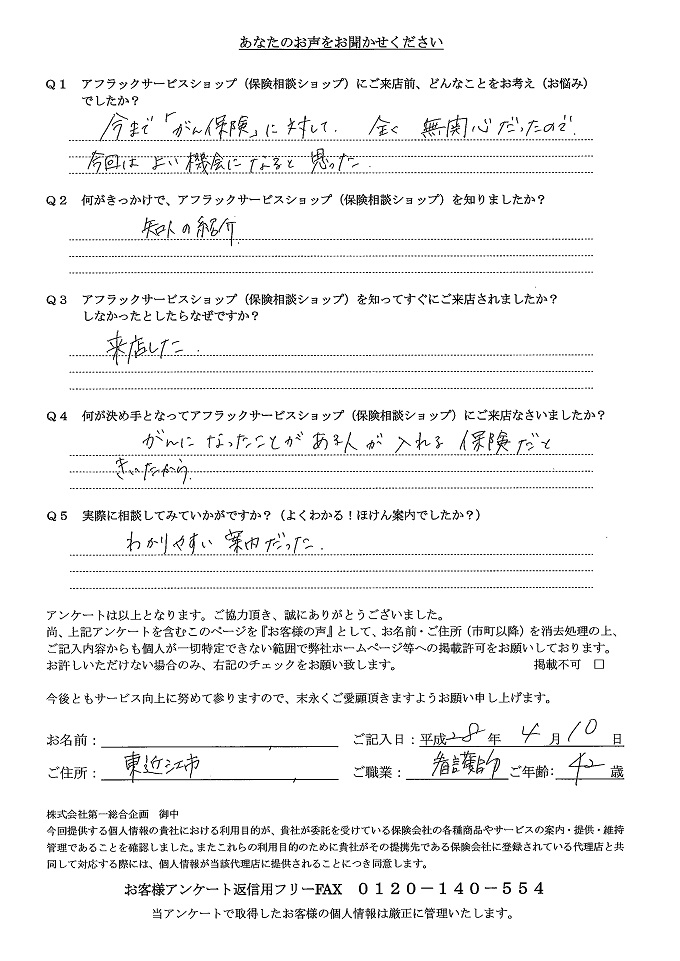 あなたのお声をお聞かせください
Q1 アフラックサービスショップ（保険相談ショップ）にご来店前、どんなことをお考え（お悩み）
でしたか？
今まで「がん保険」に対して、全く無関心だったので、
今回はよい機会になると思った。
Q2 何がきっかけで、アフラックサービスショップ（保険相談ショップ）を知りましたか？
知人の紹介
Q3 アフラックサービスショップ（保険相談ショップ）を知ってすぐにご来店されましたか？
しなかったとしたらなぜですか？
来店した。
Q4 何が決め手となってアフラックサービスショップ（保険相談ショップ）にご来店なさいましたか？
がんになったことがある人が入れる保険だと
きいたから
Q5 実際に相談してみていかがですか？（よくわかる！ほけん案内でしたか？）
わかりやすい案内だった。
アンケートは以上となります。ご協力頂き、誠にありがとうございました。
尚、上記アンケートを含むこのページを『お客様の声』として、お名前・ご住所（市町以降）を消去処理の上、
ご記入内容からも個人が一切特定できない範囲で弊社ホームページ等への掲載許可をお願いしております。
お許しいただけない場合のみ、右記のチェックをお願い致します。 掲載不可 □
今後ともサービス向上に努めて参りますので、末永くご愛顧頂きますようお願い申し上げます。
お名前： ご記入日：平成28年 4月10日
ご住所： 東近江市 ご職業： 看護師 ご年齢： 42 歳
株式会社第一総合企画 御中
今回提供する個人情報の貴社における利用目的が、貴社が委託を受けている保険会社の各種商品やサービスの案内・提供・維持
管理であることを確認しました。またこれらの利用目的のために貴社がその提携先である保険会社に登録されている代理店と共
同して対応する際には、個人情報が当該代理店に提供されることにつき同意します。
お客様アンケート返信用フリーFAX 0120－140－554
当アンケートで取得したお客様の個人情報は厳正に管理いたします。